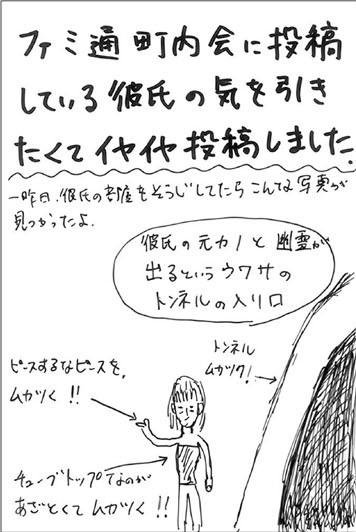 ファミ通町内会に投稿
している彼氏の気を引き
たくてイヤイヤ投稿しました。
一昨日、彼氏の部屋をそうじしてたらこんな写真が
見つかったよ。
彼氏の元カノと幽霊が
出るというウワサの
トンネルの入り口
トンネル
ムカツク!
ピースするなピースを。
ムカつく!!
チューブトップなのが
あざとくてムカつく!!